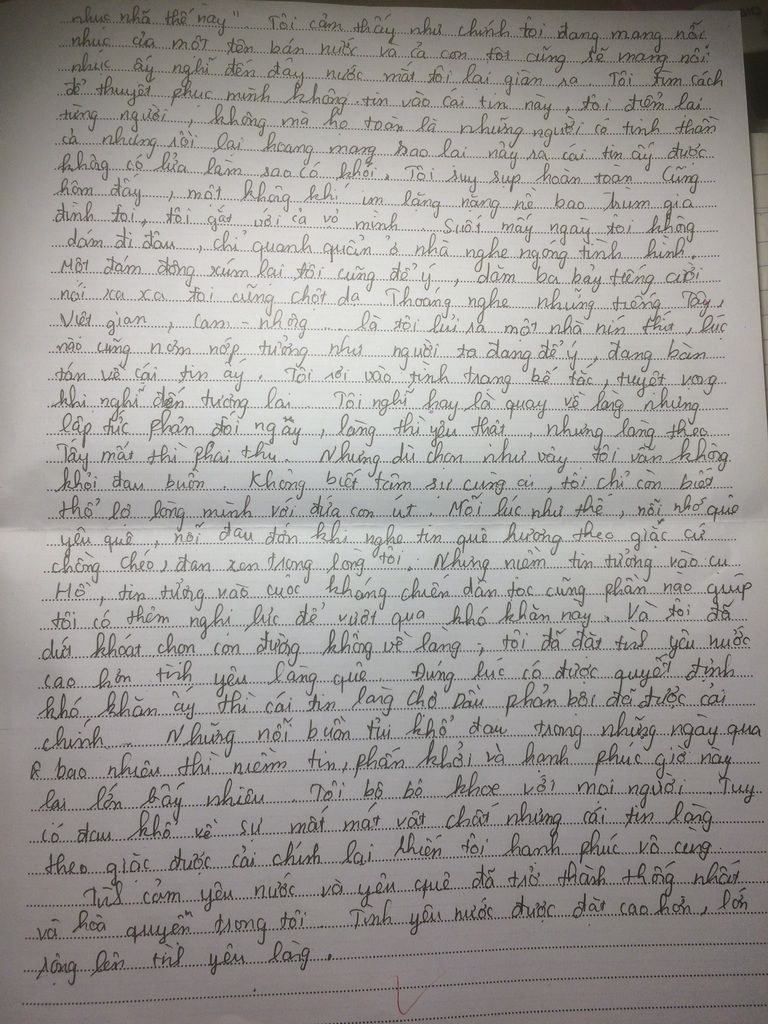 nhục nhã thế này". Tôi cảm thấy như chính tôi đang mang nỗi
nhục của một tên bán nước và cả con tôi cũng sẽ mang nỗi
nhục ấy nghĩ đến đây nước mắt tôi lại giàn ra. Tôi tìm cách
để thuyết phục mình không tin vào cái tin này, tôi điểm lại
từng người, không mà họ toàn là những người có tinh thần
cả nhưng rồi lại hoang mang sao lại nảy ra cái tin ấy được
không có lửa làm sao có khói. Tôi suy sụp hoàn toàn. Cũng
hôm đấy, một không khí im lặng nặng nề bao trùm gia
đình tôi, tôi gắt với cả vợ mình. Suốt mấy ngày tôi không
dám đi đâu, chỉ quanh quẩn ở nhà nghe ngóng tình hình.
Một đám đông xúm lại tôi cũng để ý, dăm ba bảy tiếng cười
nói xa xa tôi cũng chột dạ. Thoáng nghe những tiếng Tây,
Việt gian, cam-nhông... là tôi lủi ra một nhà nín thít, lúc
nào cũng nơm nớp tưởng như người ta đang để ý, đang bàn
tán về cái tin ấy. Tôi rơi vào tình trạng bế tắc, tuyệt vọng
khi nghĩ đến tương lai. Tôi nghĩ hay là quay về làng nhưng
lập tức phản đối ngay, làng thì yêu thật, nhưng làng theo
Tây mất thì phải thù. Nhưng dù chọn như vậy tôi vẫn không
khỏi đau buồn. Không biết tâm sự cùng ai, tôi chỉ còn biết
thổ lộ lòng mình với đứa con út. Mỗi lúc như thế, nỗi nhớ quê
yêu quê, nỗi đau đớn khi nghe tin quê hương theo giặc cứ
chồng chéo, đan xen trong lòng tôi. Nhưng niềm tin tưởng vào cụ
Hồ, tin tưởng vào cuộc kháng chiến dân tộc cũng phần nào giúp
tôi có thêm nghị lực để vượt qua khó khăn này. Và tôi đã
dứt khoát chọn con đường không về làng, tôi đã đặt tình yêu nước
cao hơn tình yêu làng quê. Đúng lúc có được quyết định
khó khăn ấy thì cái tin làng chợ Dầu phản bội đã được cải
chính. Những nỗi buồn tủi khổ đau trong những ngày qua
bao nhiêu thì niềm tin, phấn khởi và hạnh phúc giờ này
lại lớn bấy nhiêu. Tôi bô bô khoe với mọi người. Tuy
có đau khổ về sự mất mát vật chất nhưng cái tin làng
theo giặc được cải chính lại khiến tôi hạnh phúc vô cùng.
Tình cảm yêu nước và yêu quê đã trở thành thống nhất
và hoà quyện trong tôi. Tình yêu nước được đặt cao hơn, lớn
rộng lên tình yêu làng.